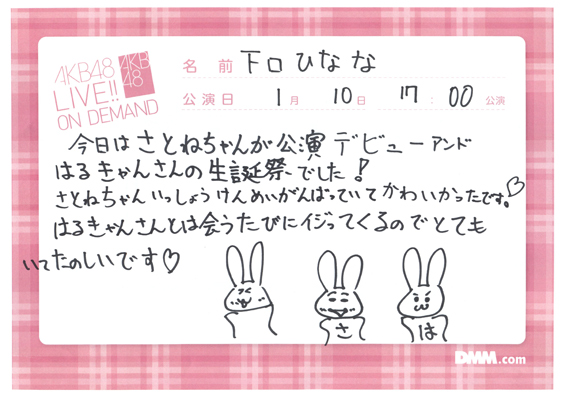 AKB48
LIVE!!
ON DEMAND
AKB
48
名前 下口ひなな
公演日 1月 10日 17:00 公演
今日はさとねちゃんが公演デビューアンド
はるきゃんさんの生誕祭でした!
さとねちゃんいっしょうけんめいがんばっていてかわいかったです。♡
はるきゃんさんとは会うたびにイジってくるのでとても
いてたのしいです♡
さ
は
DMM.com